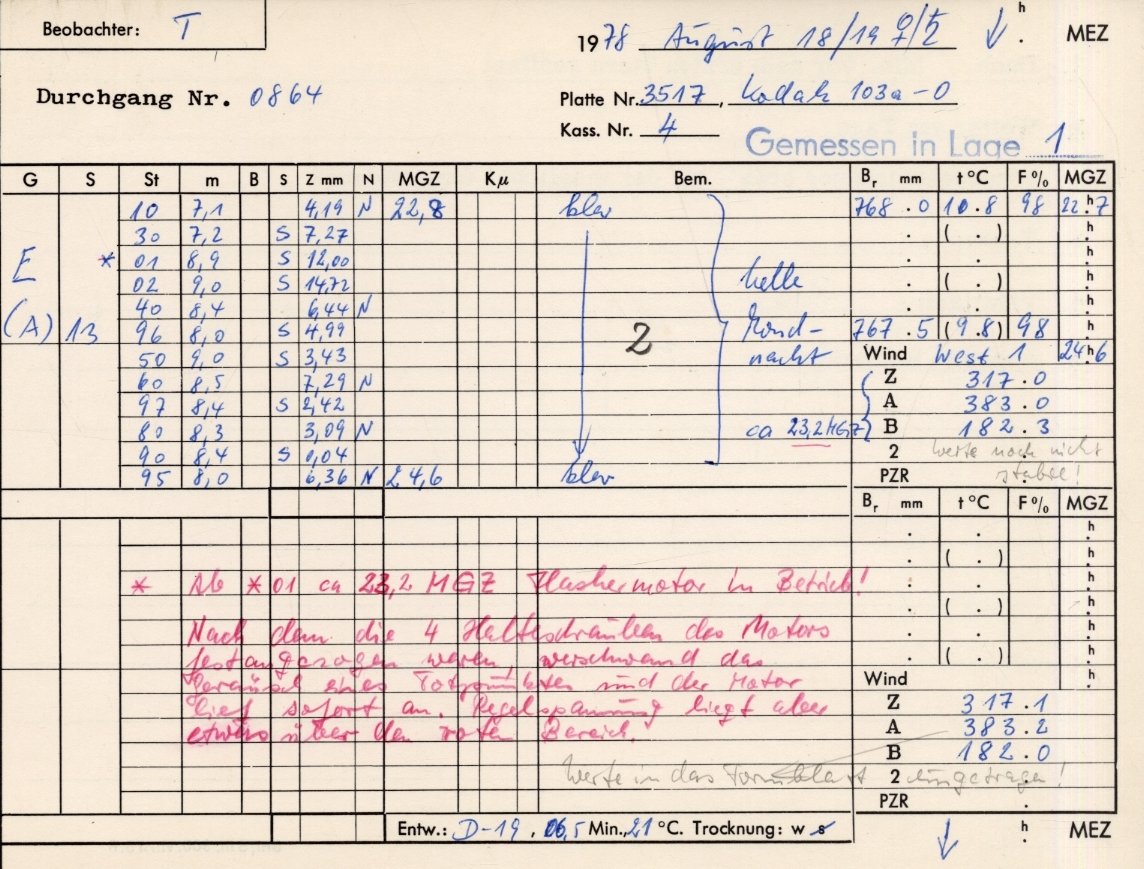 Beobachter: T
1978 August 18/19 ♀/♄ ↓ h . MEZ
Durchgang Nr. 0864
Platte Nr. 3517, Kodak 103a-O
Kass. Nr. 4
Gemessen in Lage 1
G S St m B S Z mm N MGZ Kμ Bem. Br mm t °C F% MGZ
10 7,1 4,19 N 22,8 klar 768.0 10.8 98 22h.7
30 7,2 S 7,27 . ( . ) h
E * 01 8,9 S 12,00 . h
02 9,0 S 14,72 helle . ( . ) h
40 8,4 6,44 N
(A) 13 96 8,0 S 4,99 2 Mond- 767.5 (9.8) 98 h
50 9,0 S 3,43 nacht Wind West 1 24h6
60 8,5 7,29 N Z 317.0
97 8,4 S 2,42 A 383.0
80 8,3 3,09 N ca 23,2 MGZ B 182.3
90 8,4 S 0,04 2 Werte noch nicht
95 8,0 6,36 N 24,6 klar PZR stabil!
Br mm t °C F% MGZ
. h
. ( . ) h
* Ab * 01 ca 23,2 MGZ Flashermotor in Betrieb! . h
. ( . ) h
Nach dem die 4 Halteschrauben des Motors . h
festangezogen waren, verschwand das . ( . ) h
Geräusch eines Totpunktes und der Motor Wind h
lief sofort an. Regelspannung liegt aber Z 317.1
etwas über den roten Bereich. A 383.2
B 182.0
Werte in das Formblatt 2 eingetragen!
PZR .
Entw.: D-19, 06,5 Min., 21 °C. Trocknung: w s ↓ h . MEZ